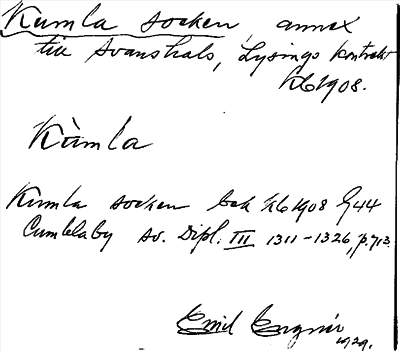 Kumla socken annex
till Svanshals, Lysings kontrakt
1/6 1908.
Kùmla
Kumla socken bok 1/6 1908 § 44
Cumblaby sv. Dipl. III 1311–1326, p. 713.
Emil
1929.